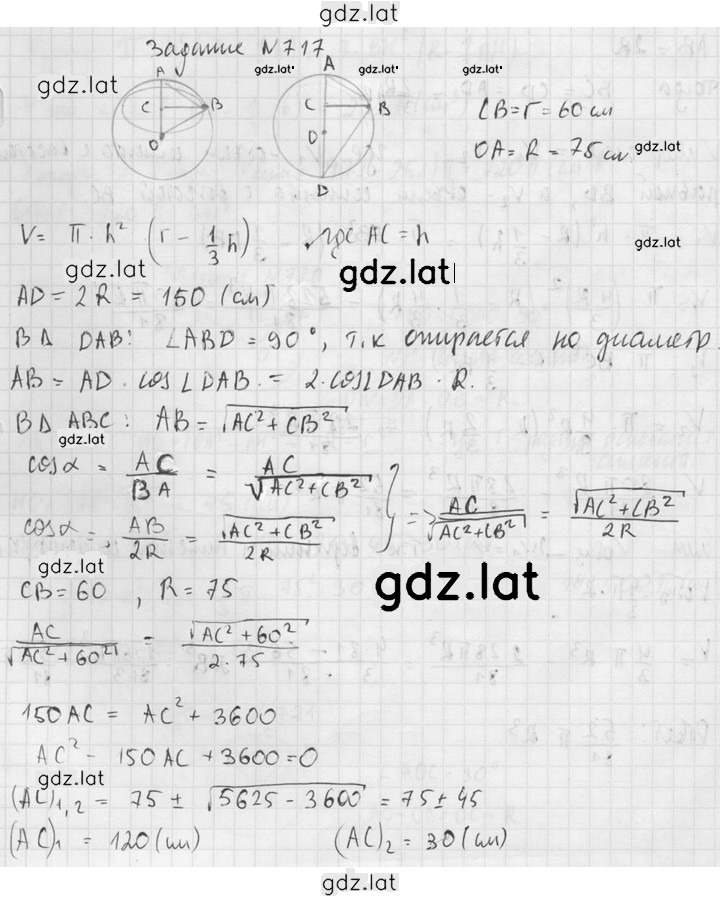 gdz.lat
Задание N717
gdz.lat gdz.lat gdz.lat
A
C B
O
A
C B
O
D
CB = r = 60 см
OA = R = 75 см
gdz.lat
V = π · h² · (r − 1/3 h) , где AC = h
gdz.lat gdz.lat gdz.lat
AD = 2R = 150 (см)
В Δ DAB: ∠ABD = 90°, т.к опирается на диаметр.
AB = AD · cos∠DAB = 2·cos∠DAB · R.
В Δ ABC: AB = √(AC² + CB²)
gdz.lat
cos α = AC/BA = AC/√(AC² + CB²)
cos α = AB/2R = √(AC² + CB²)/2R
} => AC/√(AC² + CB²) = √(AC² + CB²)/2R
gdz.lat
CB = 60 , R = 75
gdz.lat
AC/√(AC² + 60²) = √(AC² + 60²)/2·75
150AC = AC² + 3600
AC² − 150AC + 3600 = 0
gdz.lat
(AC)₁,₂ = 75 ± √(5625 − 3600) = 75 ± 45
(AC)₁ = 120 (см) (AC)₂ = 30 (см)
gdz.lat